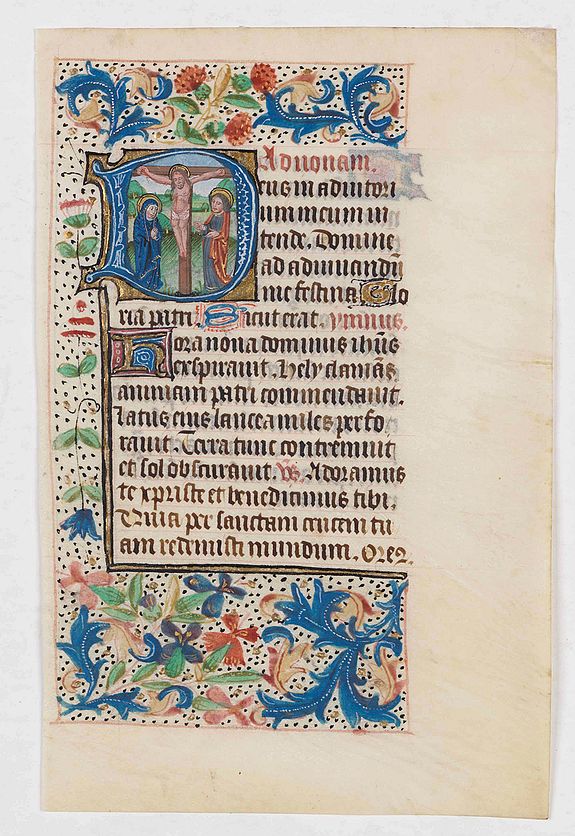 Ad nonam.
Deus in adiutori
um meum in
tende. Domine
ad adiuuandū
me festina Glo
ria patri Sicut erat. ymnus.
Hora nona dominus ihūs
exspirauit. hely clamās
animam patri commendauit.
Latus eius lancea miles perfo
rauit. Terra tunc contremuit
et sol obscurauit. Vs Adoramus
te xpriste et benedicimus tibi.
Quia per sanctam crucem tu
am redemisti mundum. Ore2